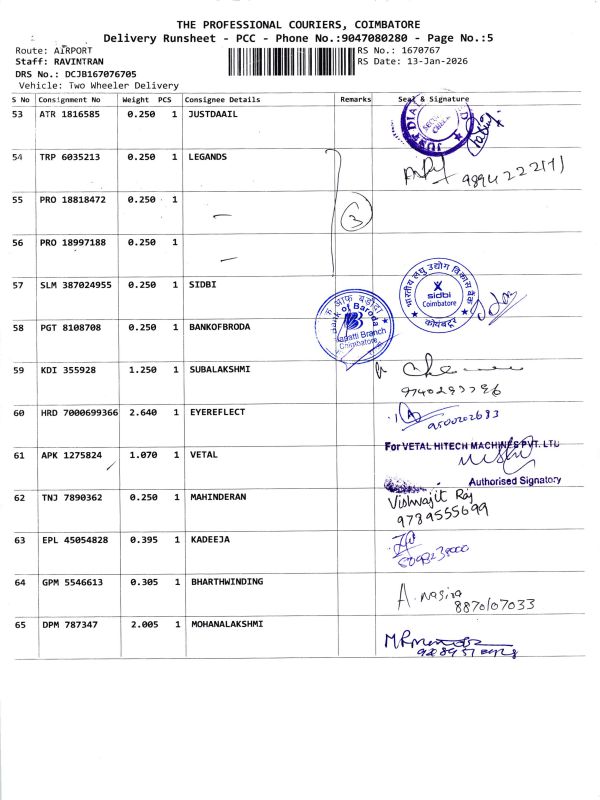 THE PROFESSIONAL COURIERS, COIMBATORE
Delivery Runsheet - PCC - Phone No.:9047080280 - Page No.:5
Route: AIRPORT RS No.: 1670767
Staff: RAVINTRAN RS Date: 13-Jan-2026
DRS No.: DCJB167076705
Vehicle: Two Wheeler Delivery
S No Consignment No Weight PCS Consignee Details Remarks Seal & Signature
53 ATR 1816585 0.250 1 JUSTDAAIL
54 TRP 6035213 0.250 1 LEGANDS
55 PRO 18818472 0.250 1 —
3
56 PRO 18997188 0.250 1 —
57 SLM 387024955 0.250 1 SIDBI
भारतीय लघु उद्योग विकास बैंक
sidbi
Coimbatore
कोयंबटूर
58 PGT 8108708 0.250 1 BANKOFBRODA
Bank of Baroda
Branch
Coimbatore
59 KDI 355928 1.250 1 SUBALAKSHMI
60 HRD 7000699366 2.640 1 EYEREFLECT
9500202633
61 APK 1275824 1.070 1 VETAL
For VETAL HITECH MACHINES PVT. LTD
Authorised Signatory
62 TNJ 7890362 0.250 1 MAHINDERAN
Vishvajit Raj
9789555699
63 EPL 45054828 0.395 1 KADEEJA
64 GPM 5546613 0.305 1 BHARTHWINDING
A. nasira
8870107033
65 DPM 787347 2.005 1 MOHANALAKSHMI